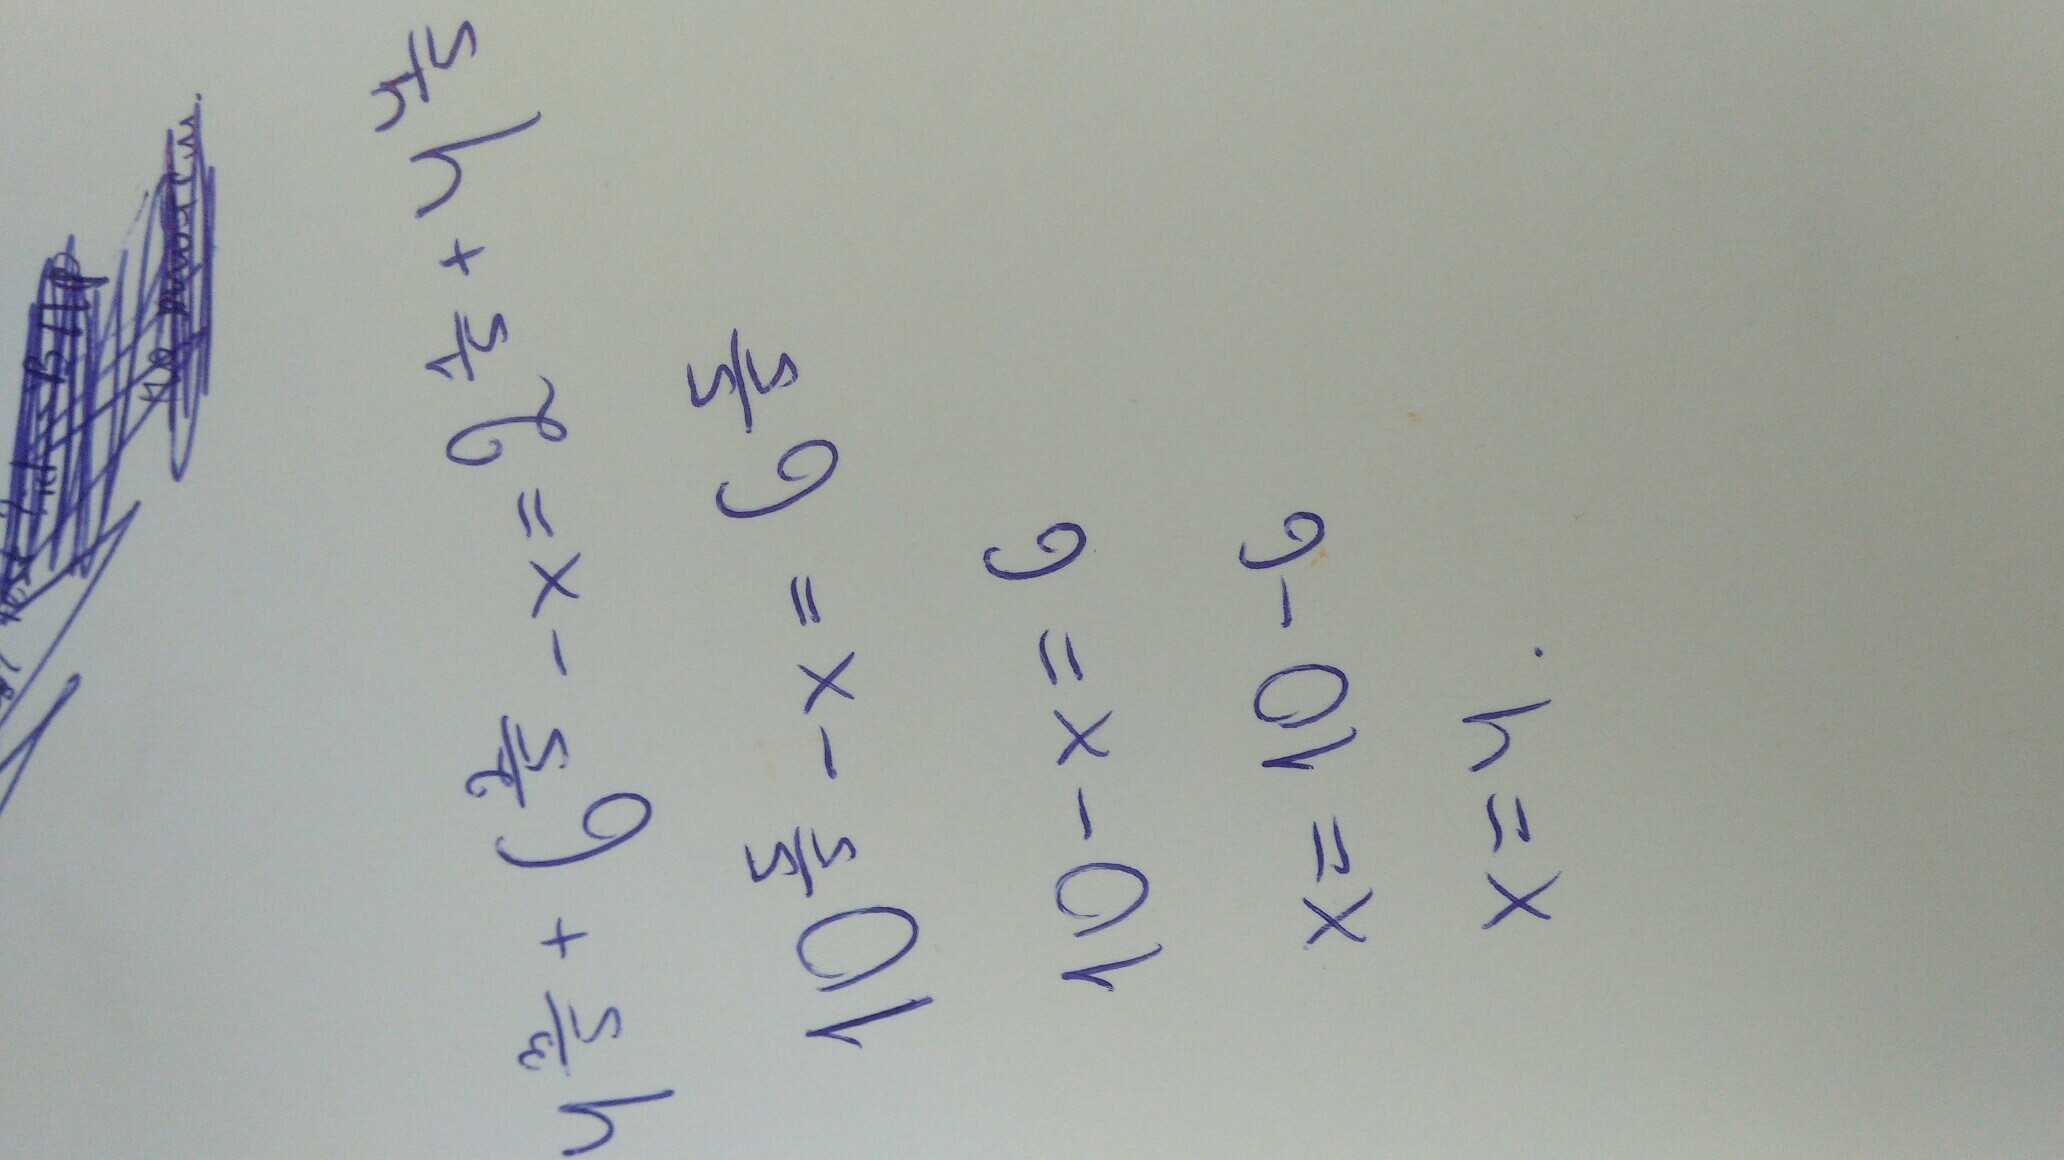 4 3/5 + 6 2/5 - x = 2 1/5 + 4 4/5
10 5/5 - x = 6 5/5
10 - x = 6
x = 10 - 6
x = 4.